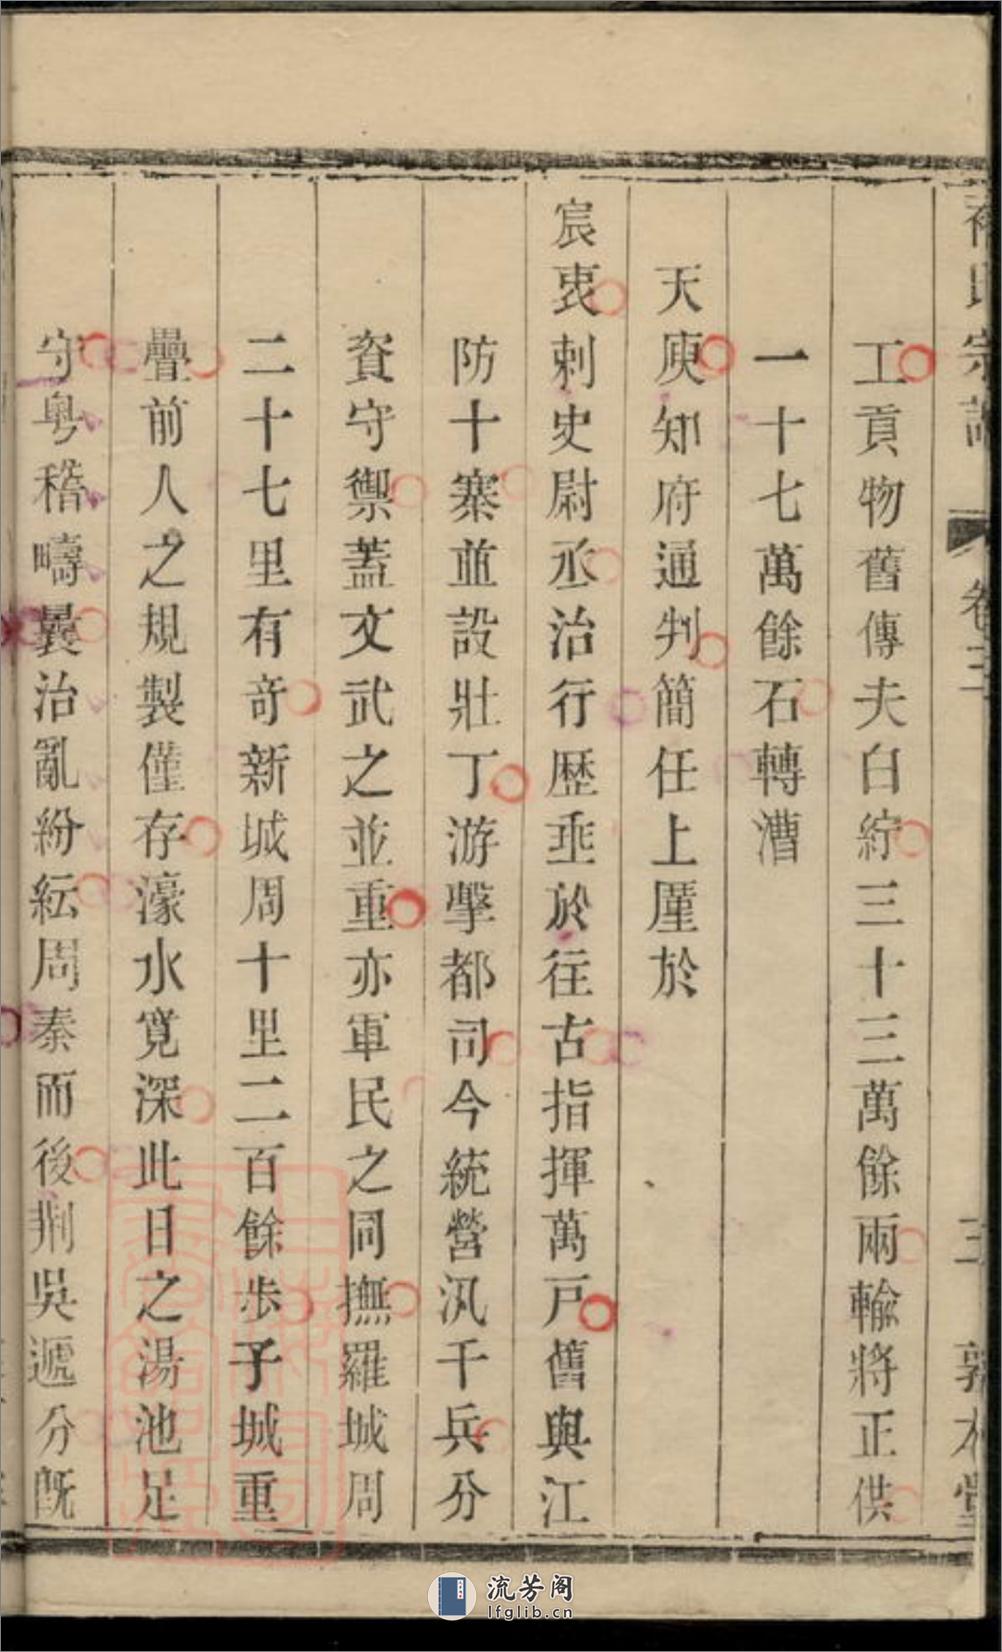 氏宗譜 卷三 三 敦本堂
工貢物舊傳夫白紵三十三萬餘兩輸將正供
一十七萬餘石轉漕
天庾知府通判簡任上厪於
宸衷刺史尉丞治行歷垂於往古指揮萬戸舊與江
防十寨並設壯丁游擊都司今統營汛千兵分
資守禦蓋文武之並重亦軍民之同撫羅城周
二十七里有奇新城周十里二百餘步子城重
疊前人之規製僅存濠水寛深此日之湯池足
守粤稽疇曩治亂紛紜周秦而後荆吳遞分既
流芳阁
lfglib.cn